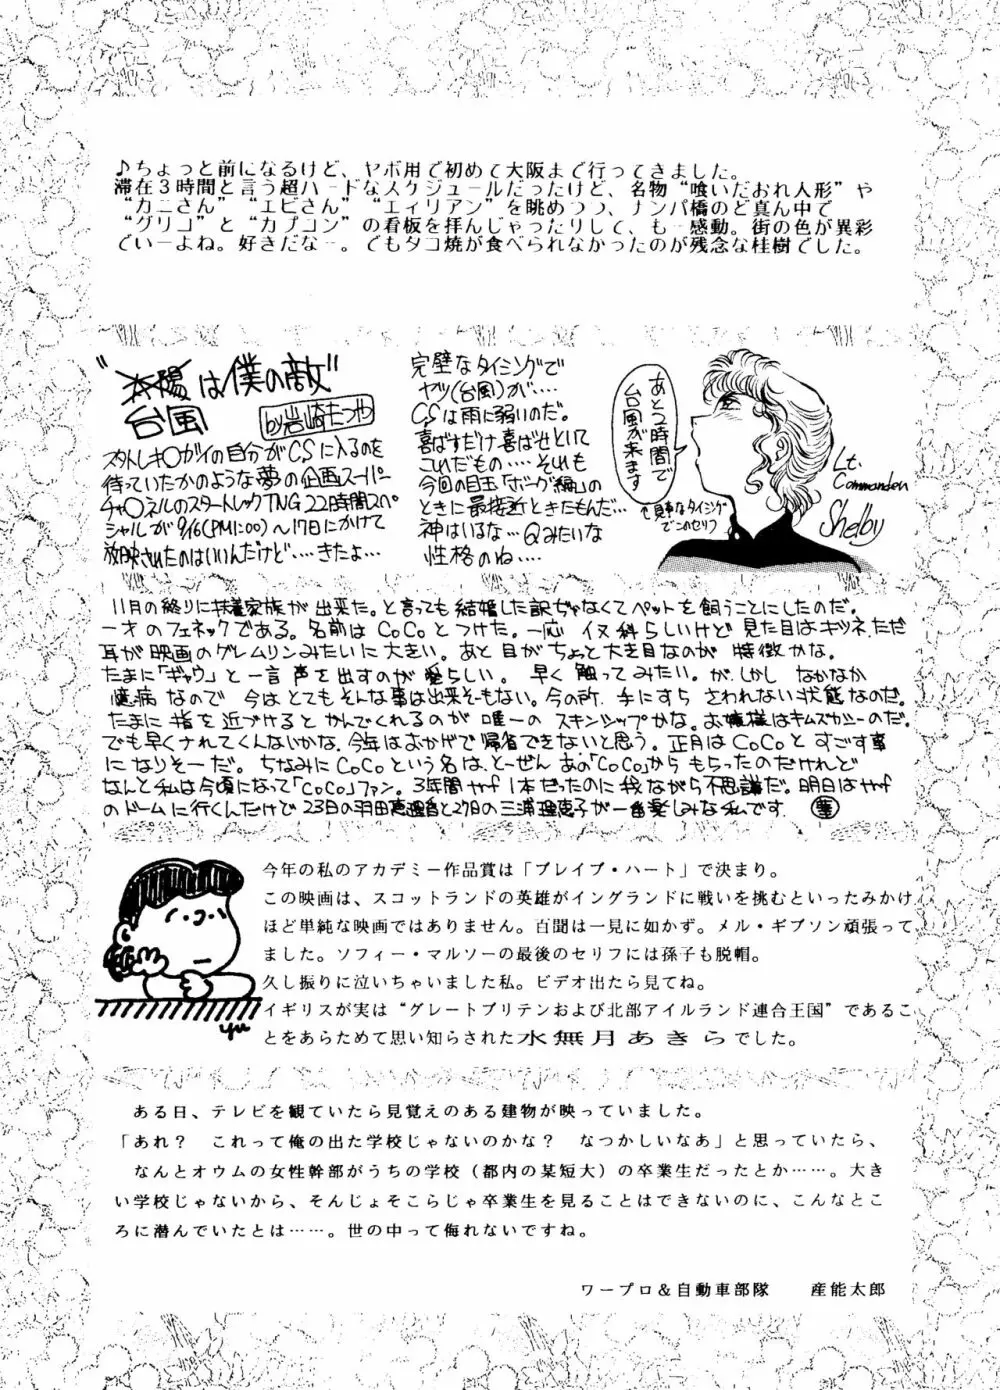 ♪ちょっと前になるけど、ヤボ用で初めて大阪まで行ってきました。
滞在3時間と言う超ハードなスケジュールだったけど、名物“喰いだおれ人形”や
“カニさん”“エビさん”“エイリアン”を眺めつつ、ナンパ橋のど真ん中で
“グリコ”と“カプコン”の看板を拝んじゃったりして、も一感動。街の色が異彩
でいーよね。好きだなー。でもタコ焼が食べられなかったのが残念な桂樹でした。
“太陽は僕の敵”
台風
by岩崎たつや
スタトレキ○ガイの自分がCSに入るのを
待っていたかのような夢の企画スーパー
チャ○ネルのスタートレックTNG22時間スペ
シャルが9/16(PM1:00)～17日にかけて
放映されたのはいいんだけど‥‥きたよ…
完璧なタイミングで
ヤツ(台風)が‥‥
CSは雨に弱いのだ。
喜ばすだけ喜ばせといて
これだもの‥‥それも
今回の目玉「ボーグ編」の
ときに最接近ときたもんだ…
神はいるな…Qみたいな
性格のね‥‥
あと2時間で
台風が来ます
見事なタイミング
でこのセリフ
Lt.
Commander
Shelby
11月の終りに扶養家族が出来た。と言っても結婚した訳ぢゃなくてペットを飼うことにしたのだ。
一才のフェネックである。名前はCoCoとつけた。一応イヌ科らしいけど見た目はキツネ、ただ
耳が映画のグレムリンみたいに大きい。あと目がちょと大き目なのが特徴かな。
たまに「ギャウ」と一言声を出すのが愛らしい。早く触ってみたい。が、しかしなかなか
臆病なので今はとてもそんな事は出来そーもない。今の所、手にすらさわれない状態なのだ。
たまに指を近づけるとかんでくれるのが唯一のスキンシップかな。お嬢様はキムズカシーのだ。
でも早くナれてくんないかな。今年はおかげで帰省できないと思う。正月はCoCoとすごす事
になりそーだ。ちなみにCoCoという名は、とーぜんあの「CoCo」からもらったのだけれど
なんと私は今頃になって「CoCo」ファン。3年間ゃf1本だったのに我ながら不思議だ。明日はゃf
のドームに行くんだけど23日の羽田恵理香と27日の三浦理恵子が一番楽しみな私です。
今年の私のアカデミー作品賞は「ブレイブ・ハート」で決まり。
この映画は、スコットランドの英雄がイングランドに戦いを挑むといったみかけ
ほど単純な映画ではありません。百聞は一見に如かず。メル・ギブソン頑張って
ました。ソフィー・マルソーの最後のセリフには孫子も脱帽。
久し振りに泣いちゃいました私。ビデオ出たら見てね。
イギリスが実は“グレートブリテンおよび北部アイルランド連合王国”であるこ
とをあらためて思い知らされた水無月あきらでした。
yu
ある日、テレビを観ていたら見覚えのある建物が映っていました。
「あれ？　これって俺の出た学校じゃないのかな？　なつかしいなあ」と思っていたら、
なんとオウムの女性幹部がうちの学校（都内の某短大）の卒業生だったとか……。大き
い学校じゃないから、そんじょそこらじゃ卒業生を見ることはできないのに、こんなとこ
ろに潜んでいたとは……。世の中って侮れないですね。
ワープロ＆自動車部隊　　産能太郎